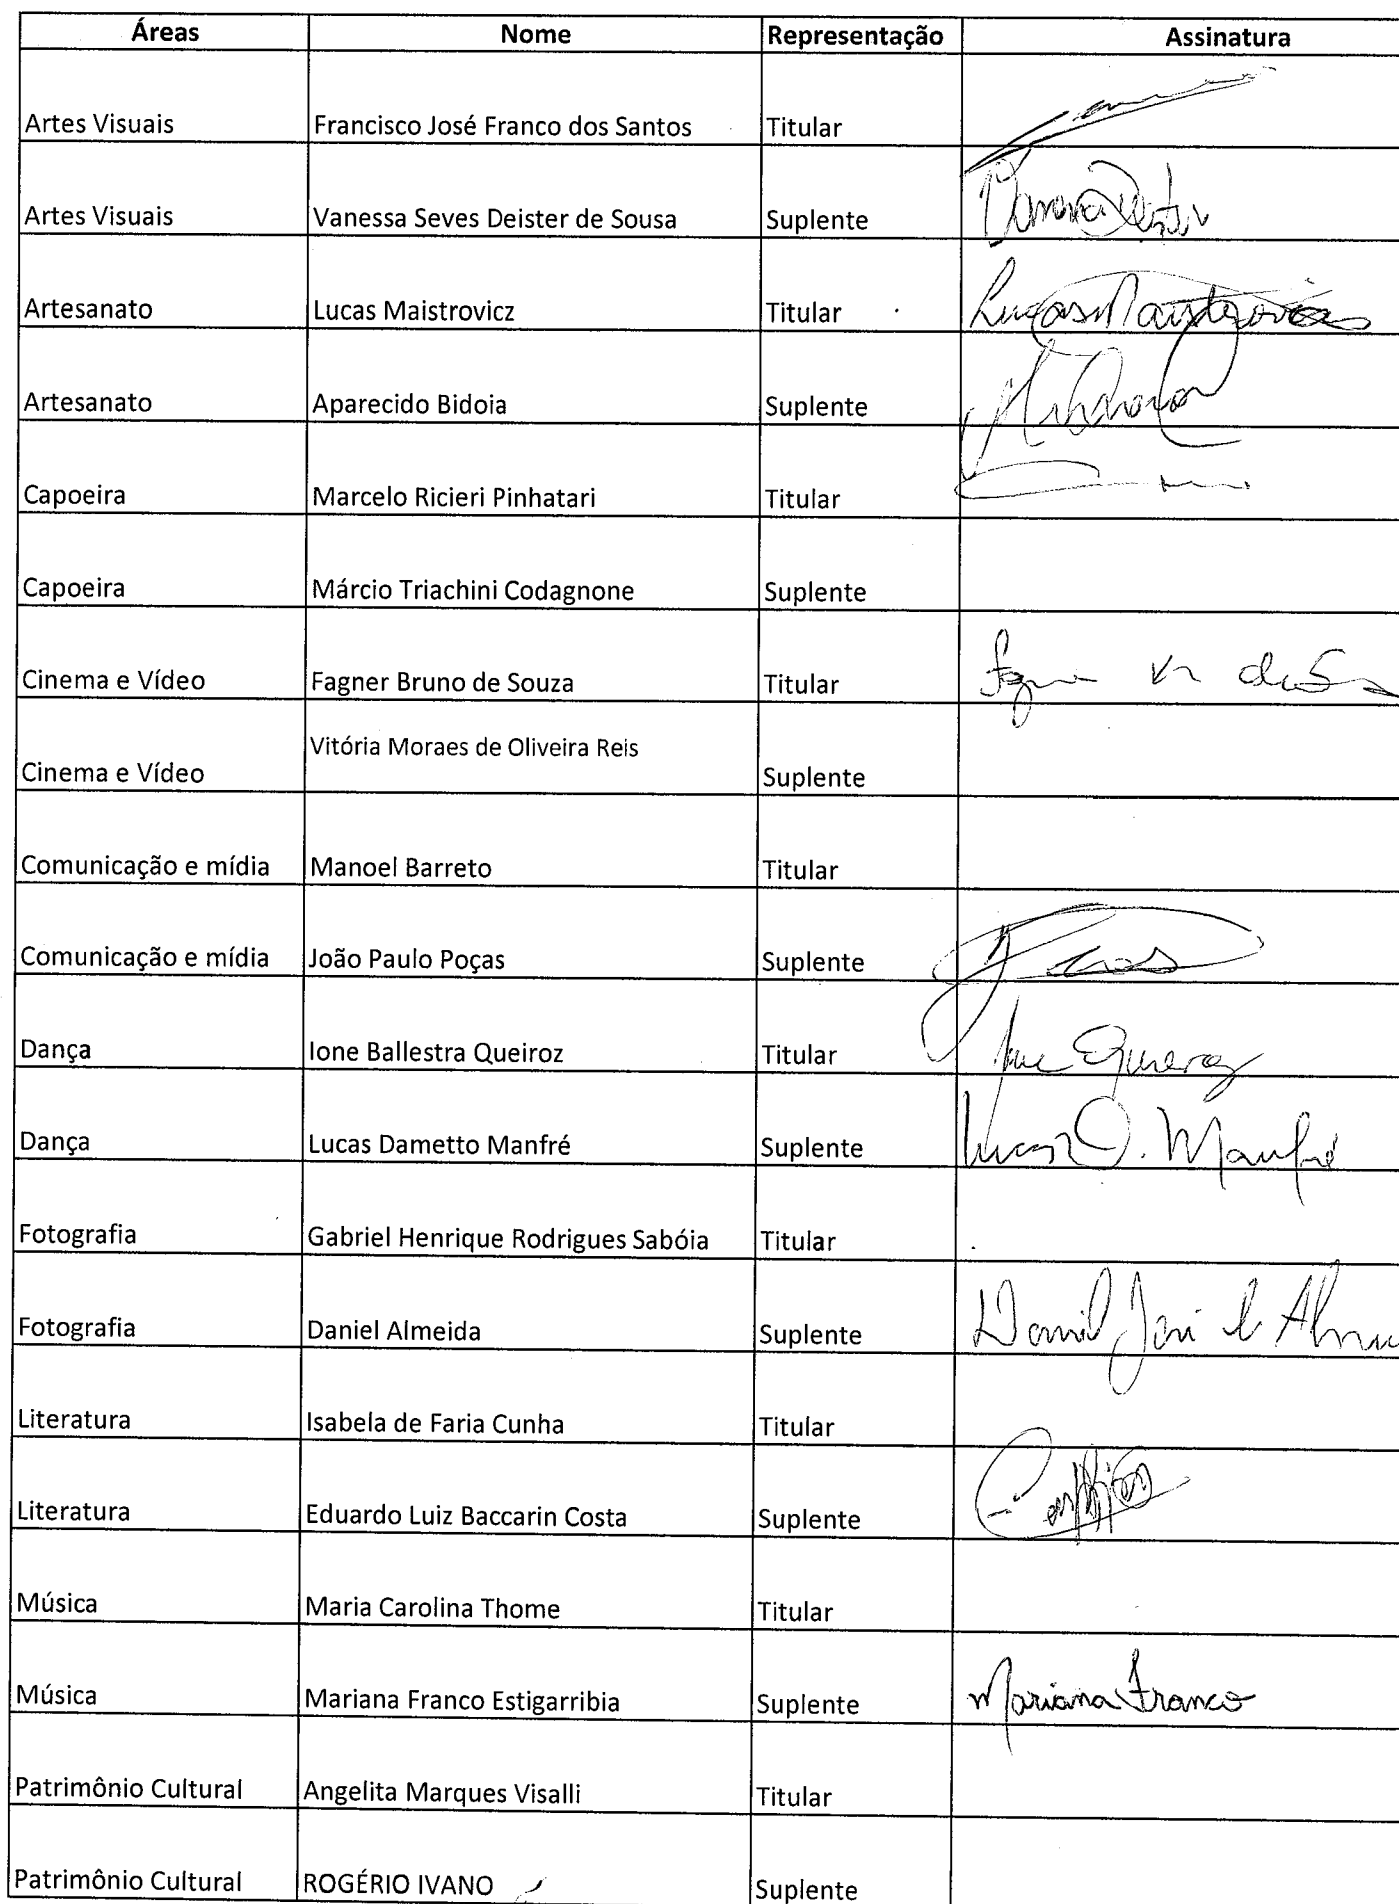 Áreas Nome Representação Assinatura
Artes Visuais Francisco José Franco dos Santos Titular
Artes Visuais Vanessa Seves Deister de Sousa Suplente
Artesanato Lucas Maistrovicz Titular Lucas Maistrovicz
Artesanato Aparecido Bidoia Suplente
Capoeira Marcelo Ricieri Pinhatari Titular
Capoeira Márcio Triachini Codagnone Suplente
Cinema e Vídeo Fagner Bruno de Souza Titular
Cinema e Vídeo Vitória Moraes de Oliveira Reis Suplente
Comunicação e mídia Manoel Barreto Titular
Comunicação e mídia João Paulo Poças Suplente
Dança Ione Ballestra Queiroz Titular
Dança Lucas Dametto Manfré Suplente Lucas D. Manfré
Fotografia Gabriel Henrique Rodrigues Sabóia Titular
Fotografia Daniel Almeida Suplente Daniel
Literatura Isabela de Faria Cunha Titular
Literatura Eduardo Luiz Baccarin Costa Suplente
Música Maria Carolina Thome Titular
Música Mariana Franco Estigarribia Suplente Mariana Franco
Patrimônio Cultural Angelita Marques Visalli Titular
Patrimônio Cultural ROGÉRIO IVANO Suplente